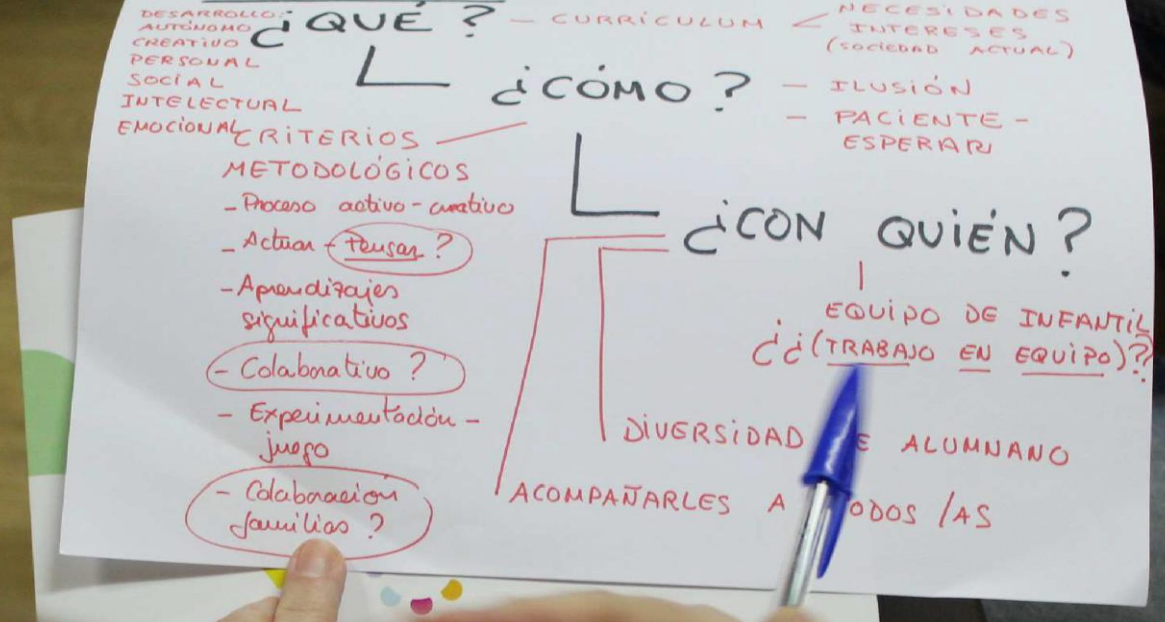 DESARROLLO:
AUTÓNOMO
CREATIVO
PERSONAL
SOCIAL
INTELECTUAL
EMOCIONAL
¿QUÉ? - CURRÍCULUM < NECESIDADES
INTERESES
(SOCIEDAD ACTUAL)
¿CÓMO? - ILUSIÓN
- PACIENTE -
ESPERAR
CRITERIOS
METODOLÓGICOS
- Proceso activo - creativo
- Actuar - Pensar ?
- Aprendizajes
significativos
- Colaborativo ?
- Experimentación -
juego
- Colaboración
familias ?
¿CON QUIÉN?
EQUIPO DE INFANTIL
¿¿(TRABAJO EN EQUIPO)??
DIVERSIDAD DE ALUMNANO
ACOMPAÑARLES A TODOS /AS